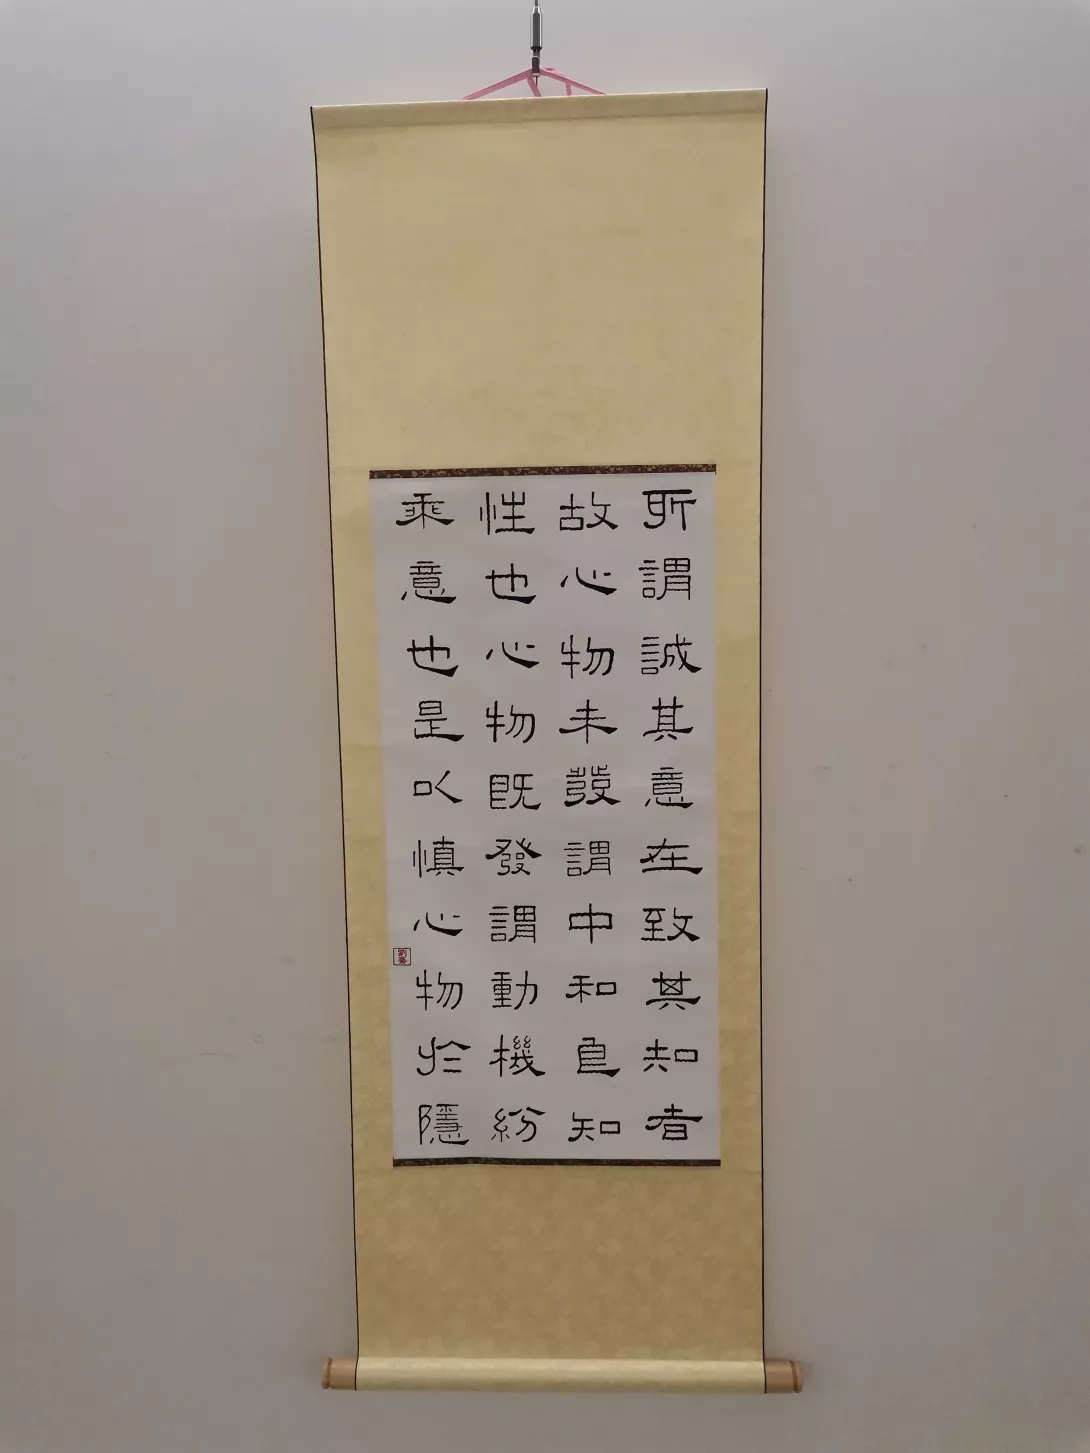 所謂誠其意在致其知者
故心物未發謂中和良知
性也心物既發謂動機紛
乘意也是以慎心物於隱